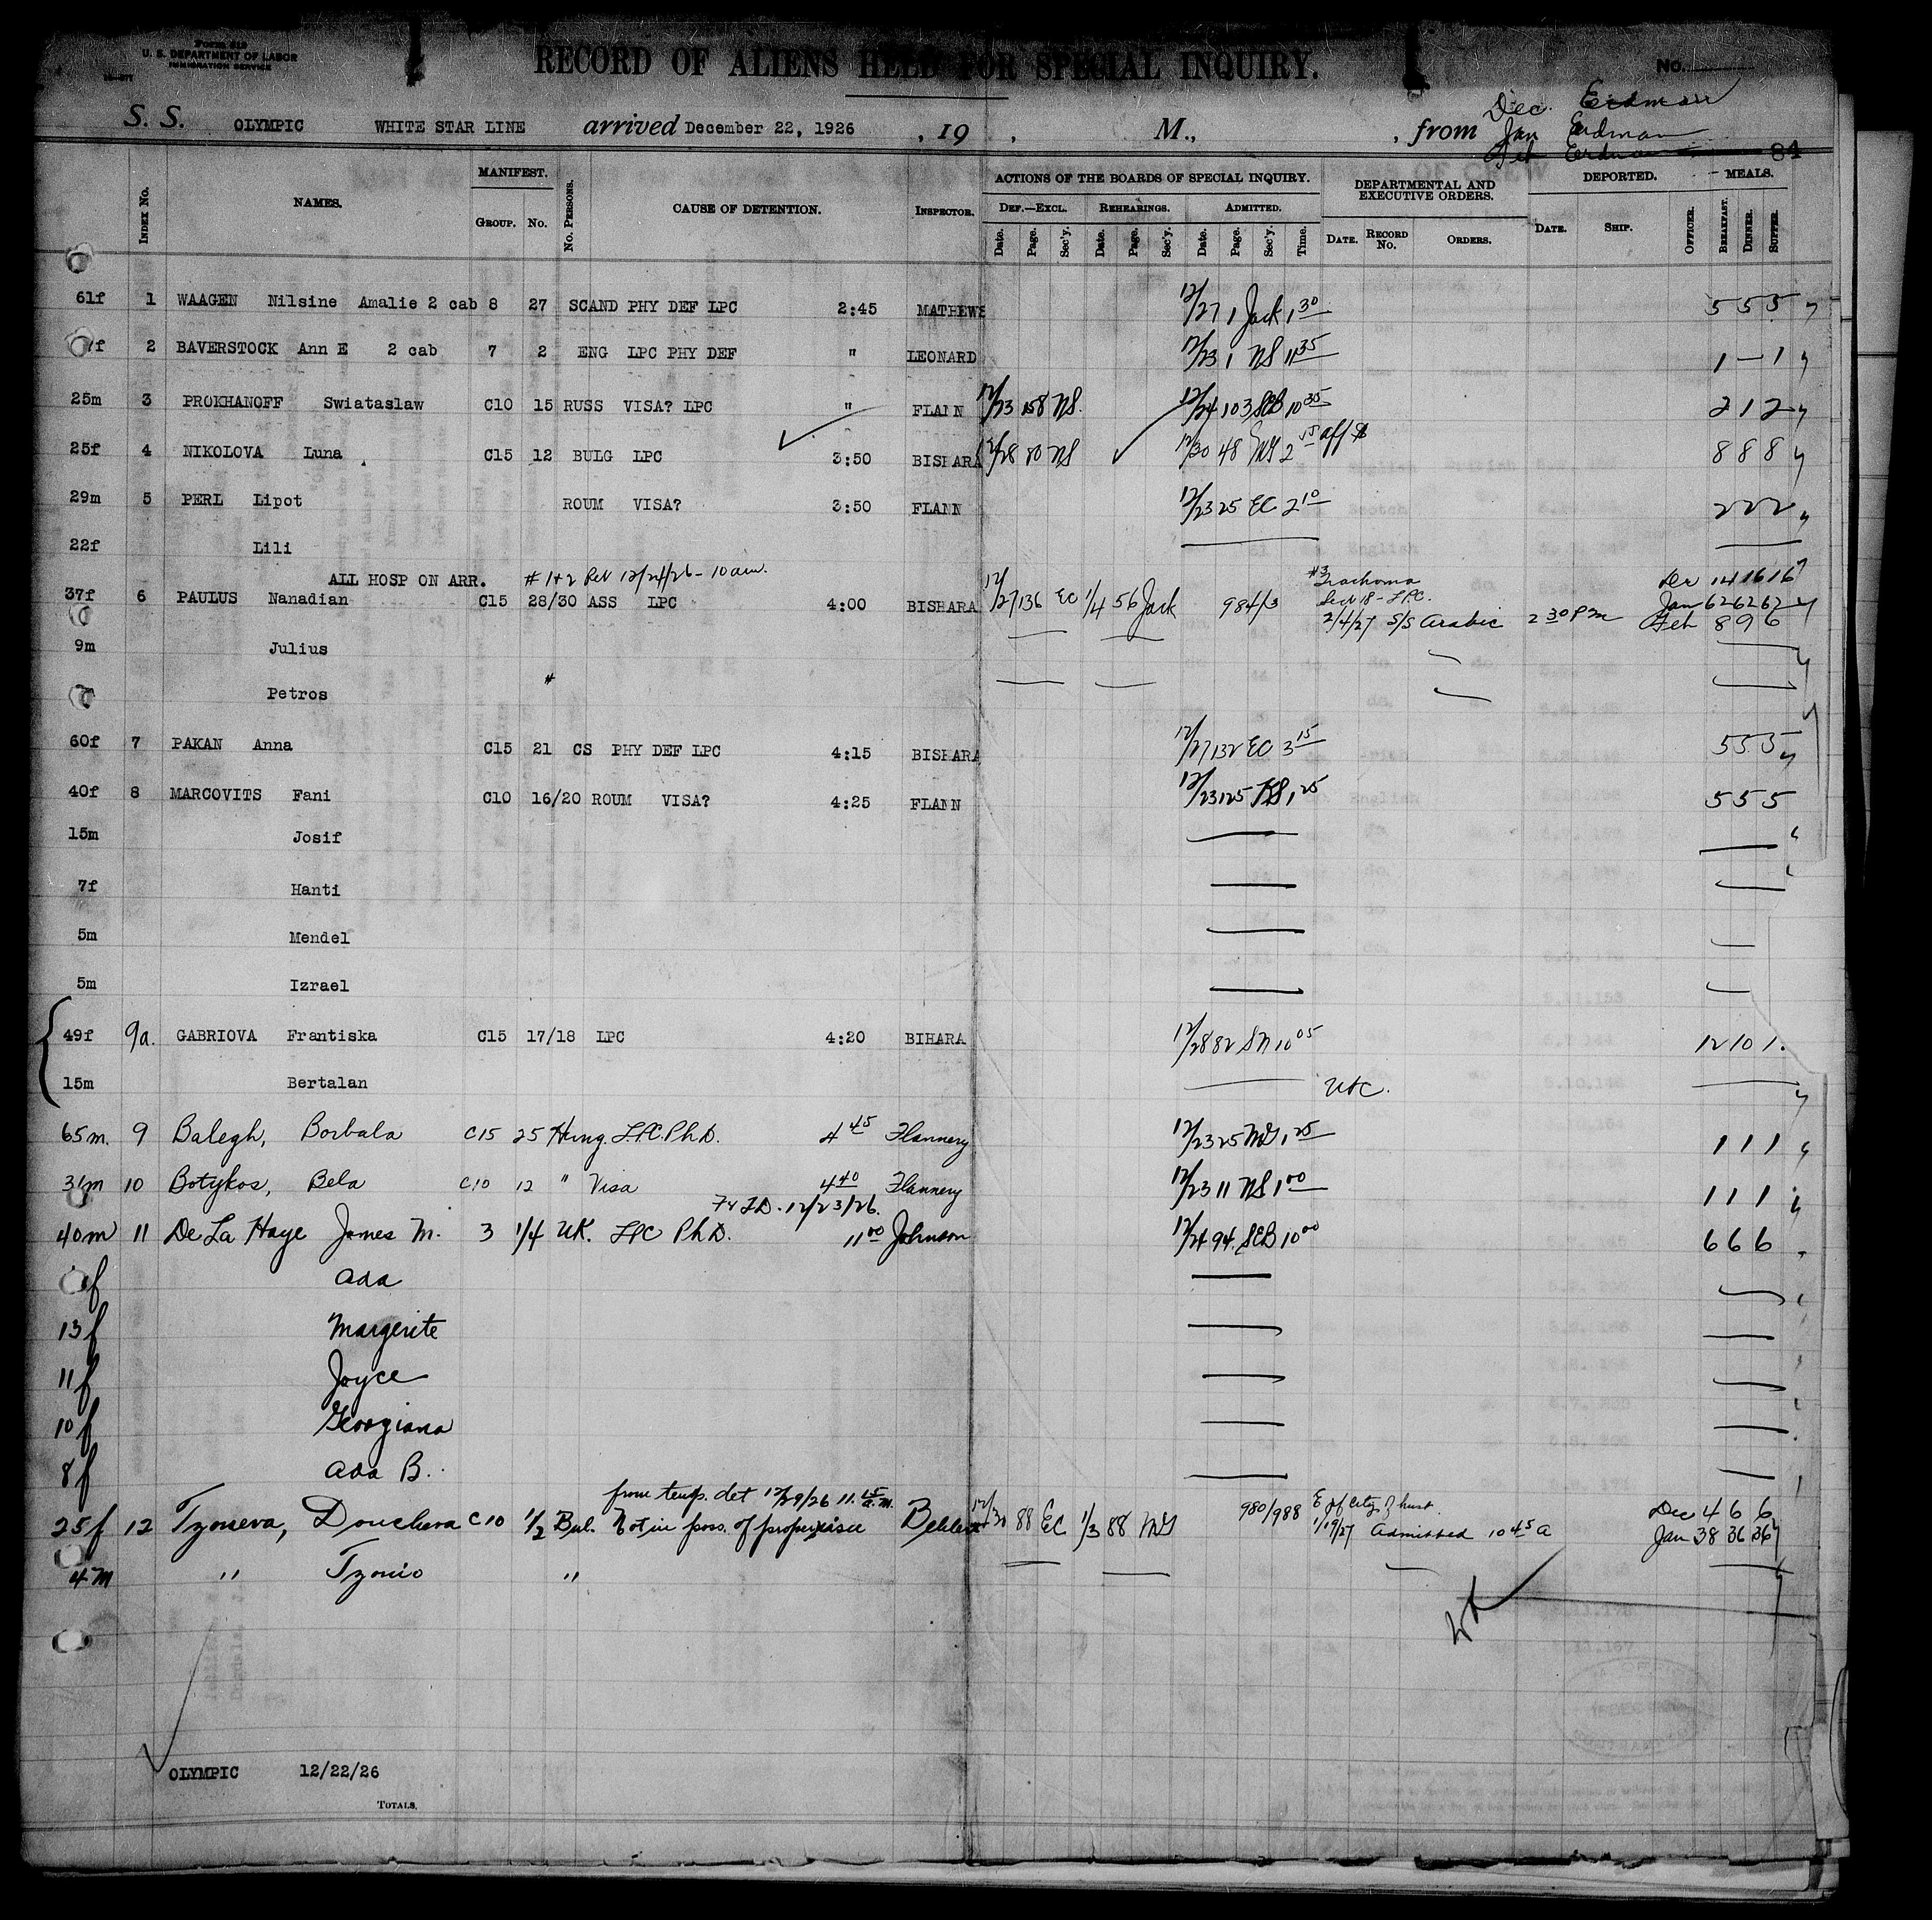 Form 619
U. S. DEPARTMENT OF LABOR
IMMIGRATION SERVICE
RECORD OF ALIENS HELD FOR SPECIAL INQUIRY.
No.
Dec. Erdman
S. S. OLYMPIC WHITE STAR LINE arrived December 22, 1926 , 19 , M., , from Jan Erdman
Feb Erdman 84
Index No. NAMES. MANIFEST. Group. No. No. Persons. CAUSE OF DETENTION. Inspector. ACTIONS OF THE BOARDS OF SPECIAL INQUIRY. DEPARTMENTAL AND EXECUTIVE ORDERS. DEPORTED. MEALS.
Def.—Excl. Rehearings. Admitted.
Date. Page. Sec'y. Date. Page. Sec'y. Date. Page. Sec'y. Time. Date. Record No. Orders. Date. Ship. Officer. Breakfast. Dinner. Supper.
61f 1 WAAGEN Nilsine Amalie 2 cab 8 27 SCAND PHY DEF LPC 2:45 MATHEWS 12/27 1 Jack 1 30 5 5 5
2 BAVERSTOCK Ann E 2 cab 7 2 ENG LPC PHY DEF " LEONARD 12/23 1 NS 11 35 1 — 1
25m 3 PROKHANOFF Swiataslaw C10 15 RUSS VISA? LPC " FLANN 12/23 158 NS. 12/24 103 SCB 10 35 2 1 2
25f 4 NIKOLOVA Luna C15 12 BULG LPC 3:50 BISHARA 12/28 80 NS 12/30 48 2 8 8 8
29m 5 PERL Lipot ROUM VISA? 3:50 FLANN 12/23 25 EC 2 10 2 2 2
22f Lili
ALL HOSP ON ARR. # 1+2 Rel 12/24/26 - 10 am.
37f 6 PAULUS Nanadian C15 28/30 ASS LPC 4:00 BISHARA 12/27 136 EC 1/4 56 Jack 984/13 #3 Trachoma Dec 14 16 16
Sec 18 - LPC. Jan 62 62 62
2/4/27 S/S Arabic 2 30 PM Feb 8 9 6
9m Julius
Petros #
60f 7 PAKAN Anna C15 21 CS PHY DEF LPC 4:15 BISHARA 12/27 132 EC 3 15 5 5 5
40f 8 MARCOVITS Fani C10 16/20 ROUM VISA? 4:25 FLANN 12/23 125 1 25 5 5 5
15m Josif
7f Hanti
5m Mendel
5m Izrael
49f 9a. GABRIOVA Frantiska C15 17/18 LPC 4:20 BIHARA 12/28 82 SN 10 05 12 10 1.
15m Bertalan
65m. 9 Balegh, Borbala C15 25 Hung. LPC. Ph D. 4 45 Flannery 12/23 25 1 25 1 1 1
31m 10 Botykos, Bela C10 12 " Visa 4 40 Flannery 12/23 11 NS 1 00 1 1 1
12/23/26.
40m 11 De La Haye James M. 3 1/4 UK. LPC Ph D. 11 00 Johnson 12/24 94. SCB 10 00 6 6 6
f Ada
13f Margerite
11f Joyce
10f Georgiana
8f Ada B.
from temp. det 12/29/26 11.15 a.m.
25f 12 Tzoneva, Doucheva C10 1/2 Bul. Not in poss. of proper visa 12/30 88 EC 1/3 88 980/988 Dec 4 6 6
1/19/27 Admitted 10 45 A Jan 38 36 36
4m " Tzonio "
OLYMPIC 12/22/26
Totals.